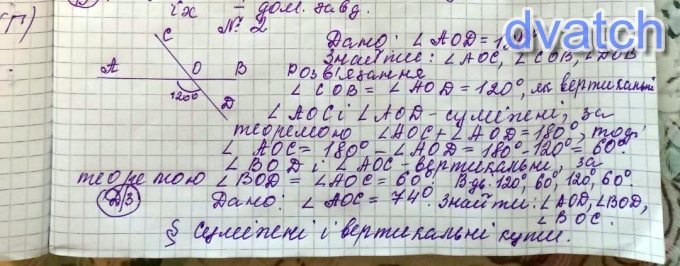 їх – дом. завд.
№ 2
dvatch
C
A O B
120°
D
Дано: ∠AOD = 1
Знайти: ∠AOC, ∠COB, ∠DOB
Розв'язання
∠COB = ∠AOD = 120°, як вертикальні
∠AOC і ∠AOD – суміжні, за
теоремою ∠AOC + ∠AOD = 180°, тоді
∠AOC = 180° – ∠AOD = 180° - 120° = 60°.
∠BOD і ∠AOC – вертикальні, за
теоремою ∠BOD = ∠AOC = 60°. Відп. 120°, 60°, 120°, 60°.
Д/З Дано: ∠AOC = 74°. Знайти: ∠AOD, ∠BOD,
∠BOC.
§ Суміжні і вертикальні кути.